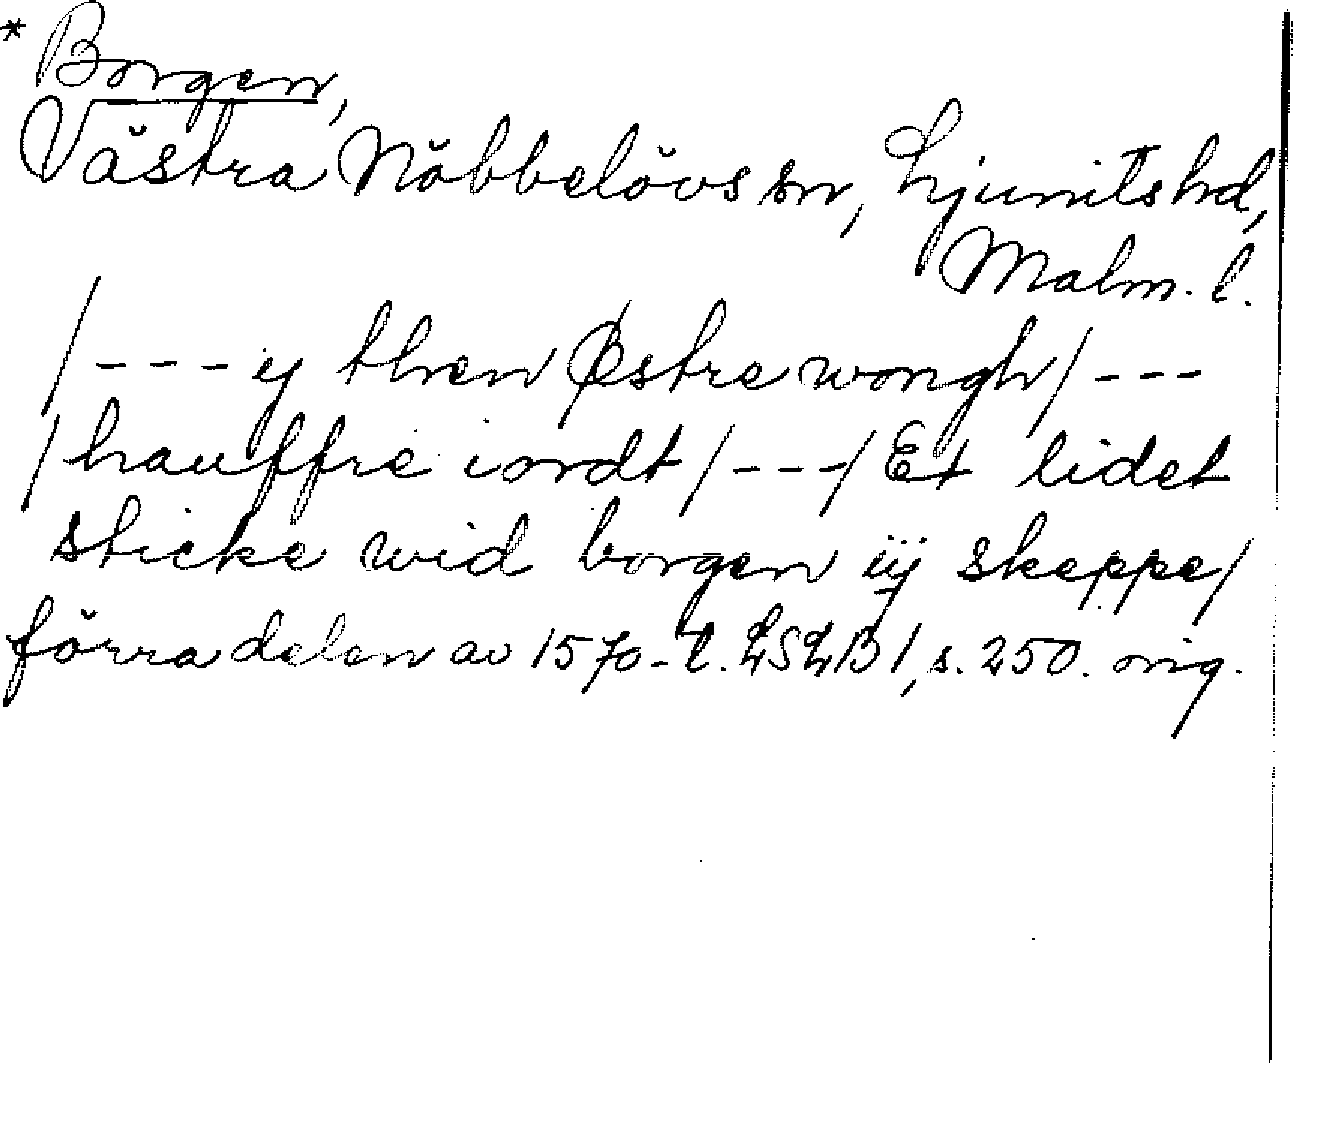 * Borgen,
Västra Nöbbelövs sn, Ljunits hd,
Malm. l.
/--- ij then Østre wongh/---
/hauffre iordt/---/ Et lidet
sticke wid borgen iij skeppe/
förra delen av 1570-t. LSLB 1, s. 250. orig.